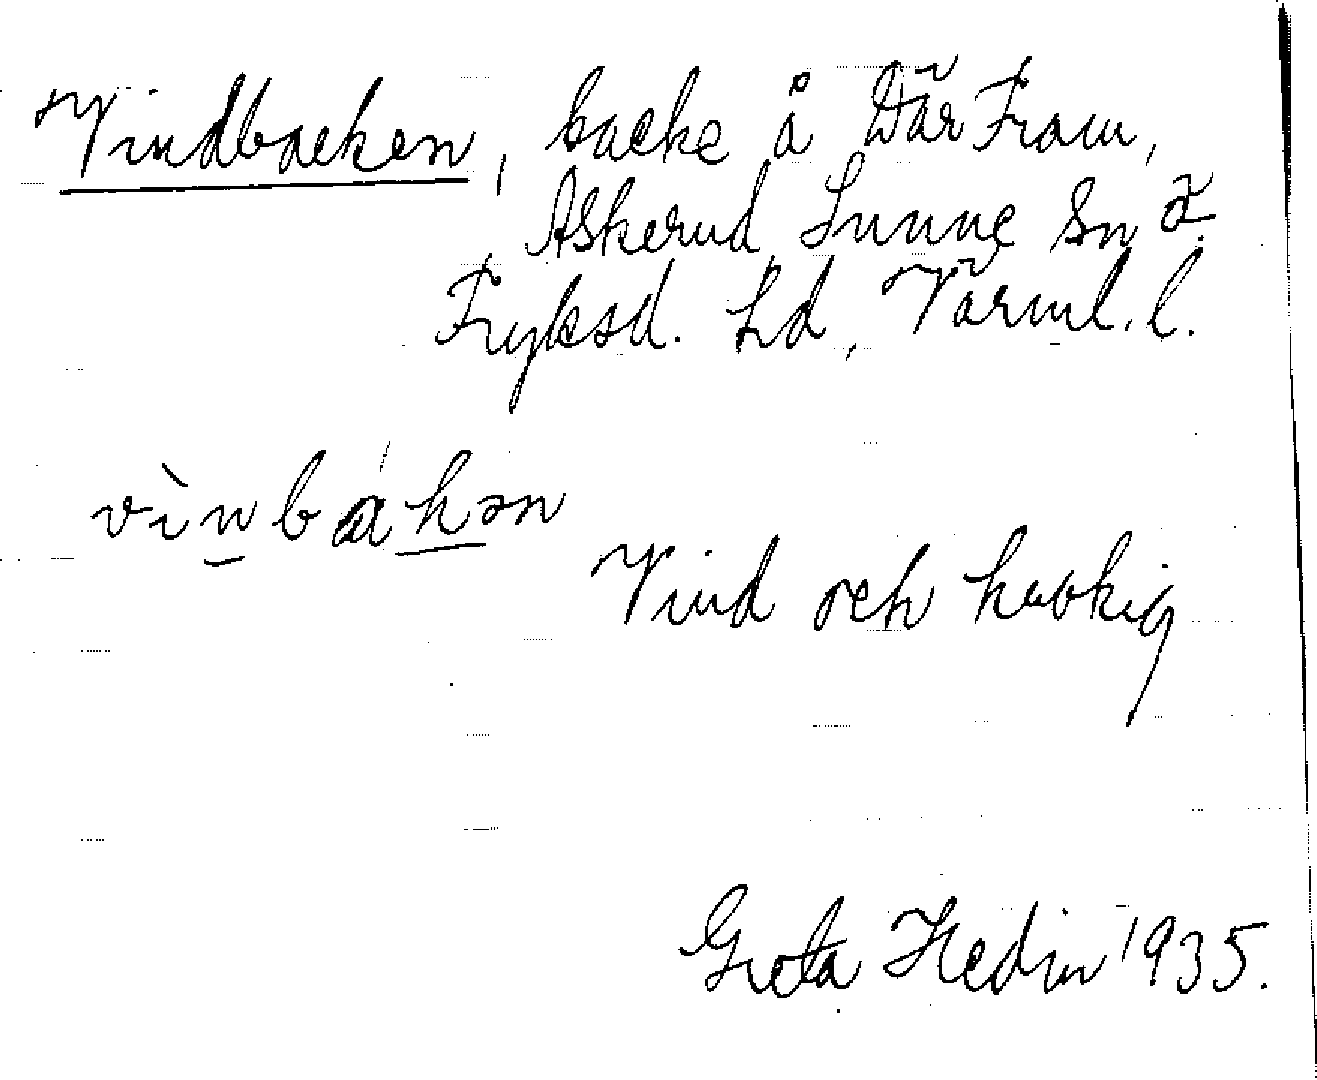 Vindbacken, backe å Där Fram,
Askerud, Sunne sn Ä
Fryksd. hd, Värml. l.
vìnbákən
Vind och krokig
Greta Hedin 1935.